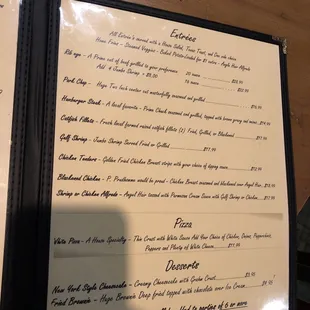 Entrées
All Entrée's served with a House Salad, Texas Toast, and One side choice
House Fries - Steamed Veggies - Baked Potato-Loaded for $1 extra - Angel Hair Alfredo
Rib eye - A Prime cut of beef grilled to your preference 10 ounce
Add 4 Jumbo Shrimp + $5.00
Pork Chop - Huge Two Inch center cut masterfully seasoned and grilled
Hamburger Steak - A local favorite - Prime Chuck seasoned and grilled, topped with brown gravy and onions
Catfish Fillets - Fresh local farmed raised catfish fillets (2) Fried, Grilled, or Blackened
Gulf Shrimp - Jumbo Shrimp Served Fried or Grilled
Chicken Tenders - Golden Fried Chicken Breast strips with your choice of dipping sauce
Blackened Chicken - P. Prudhomme would be proud - Chicken Breast seasoned and blackened over Angel Hair
Shrimp or Chicken Alfredo - Angel Hair tossed with Parmesan Cream Sauce with Gulf Shrimp or Chicken
Pizza
White Pizza - A House Specialty - Thin Crust with White Sauce Add Your Choice of Chicken, Onions, Pepperoncis,
Peppers and Plenty of White Cheese
Desserts
New York Style Cheesecake - Creamy Cheesecake with Graham Crust
Fried Brownie - Huge Brownie Deep fried topped with chocolate over Ice Cream
to parties of 6 or more